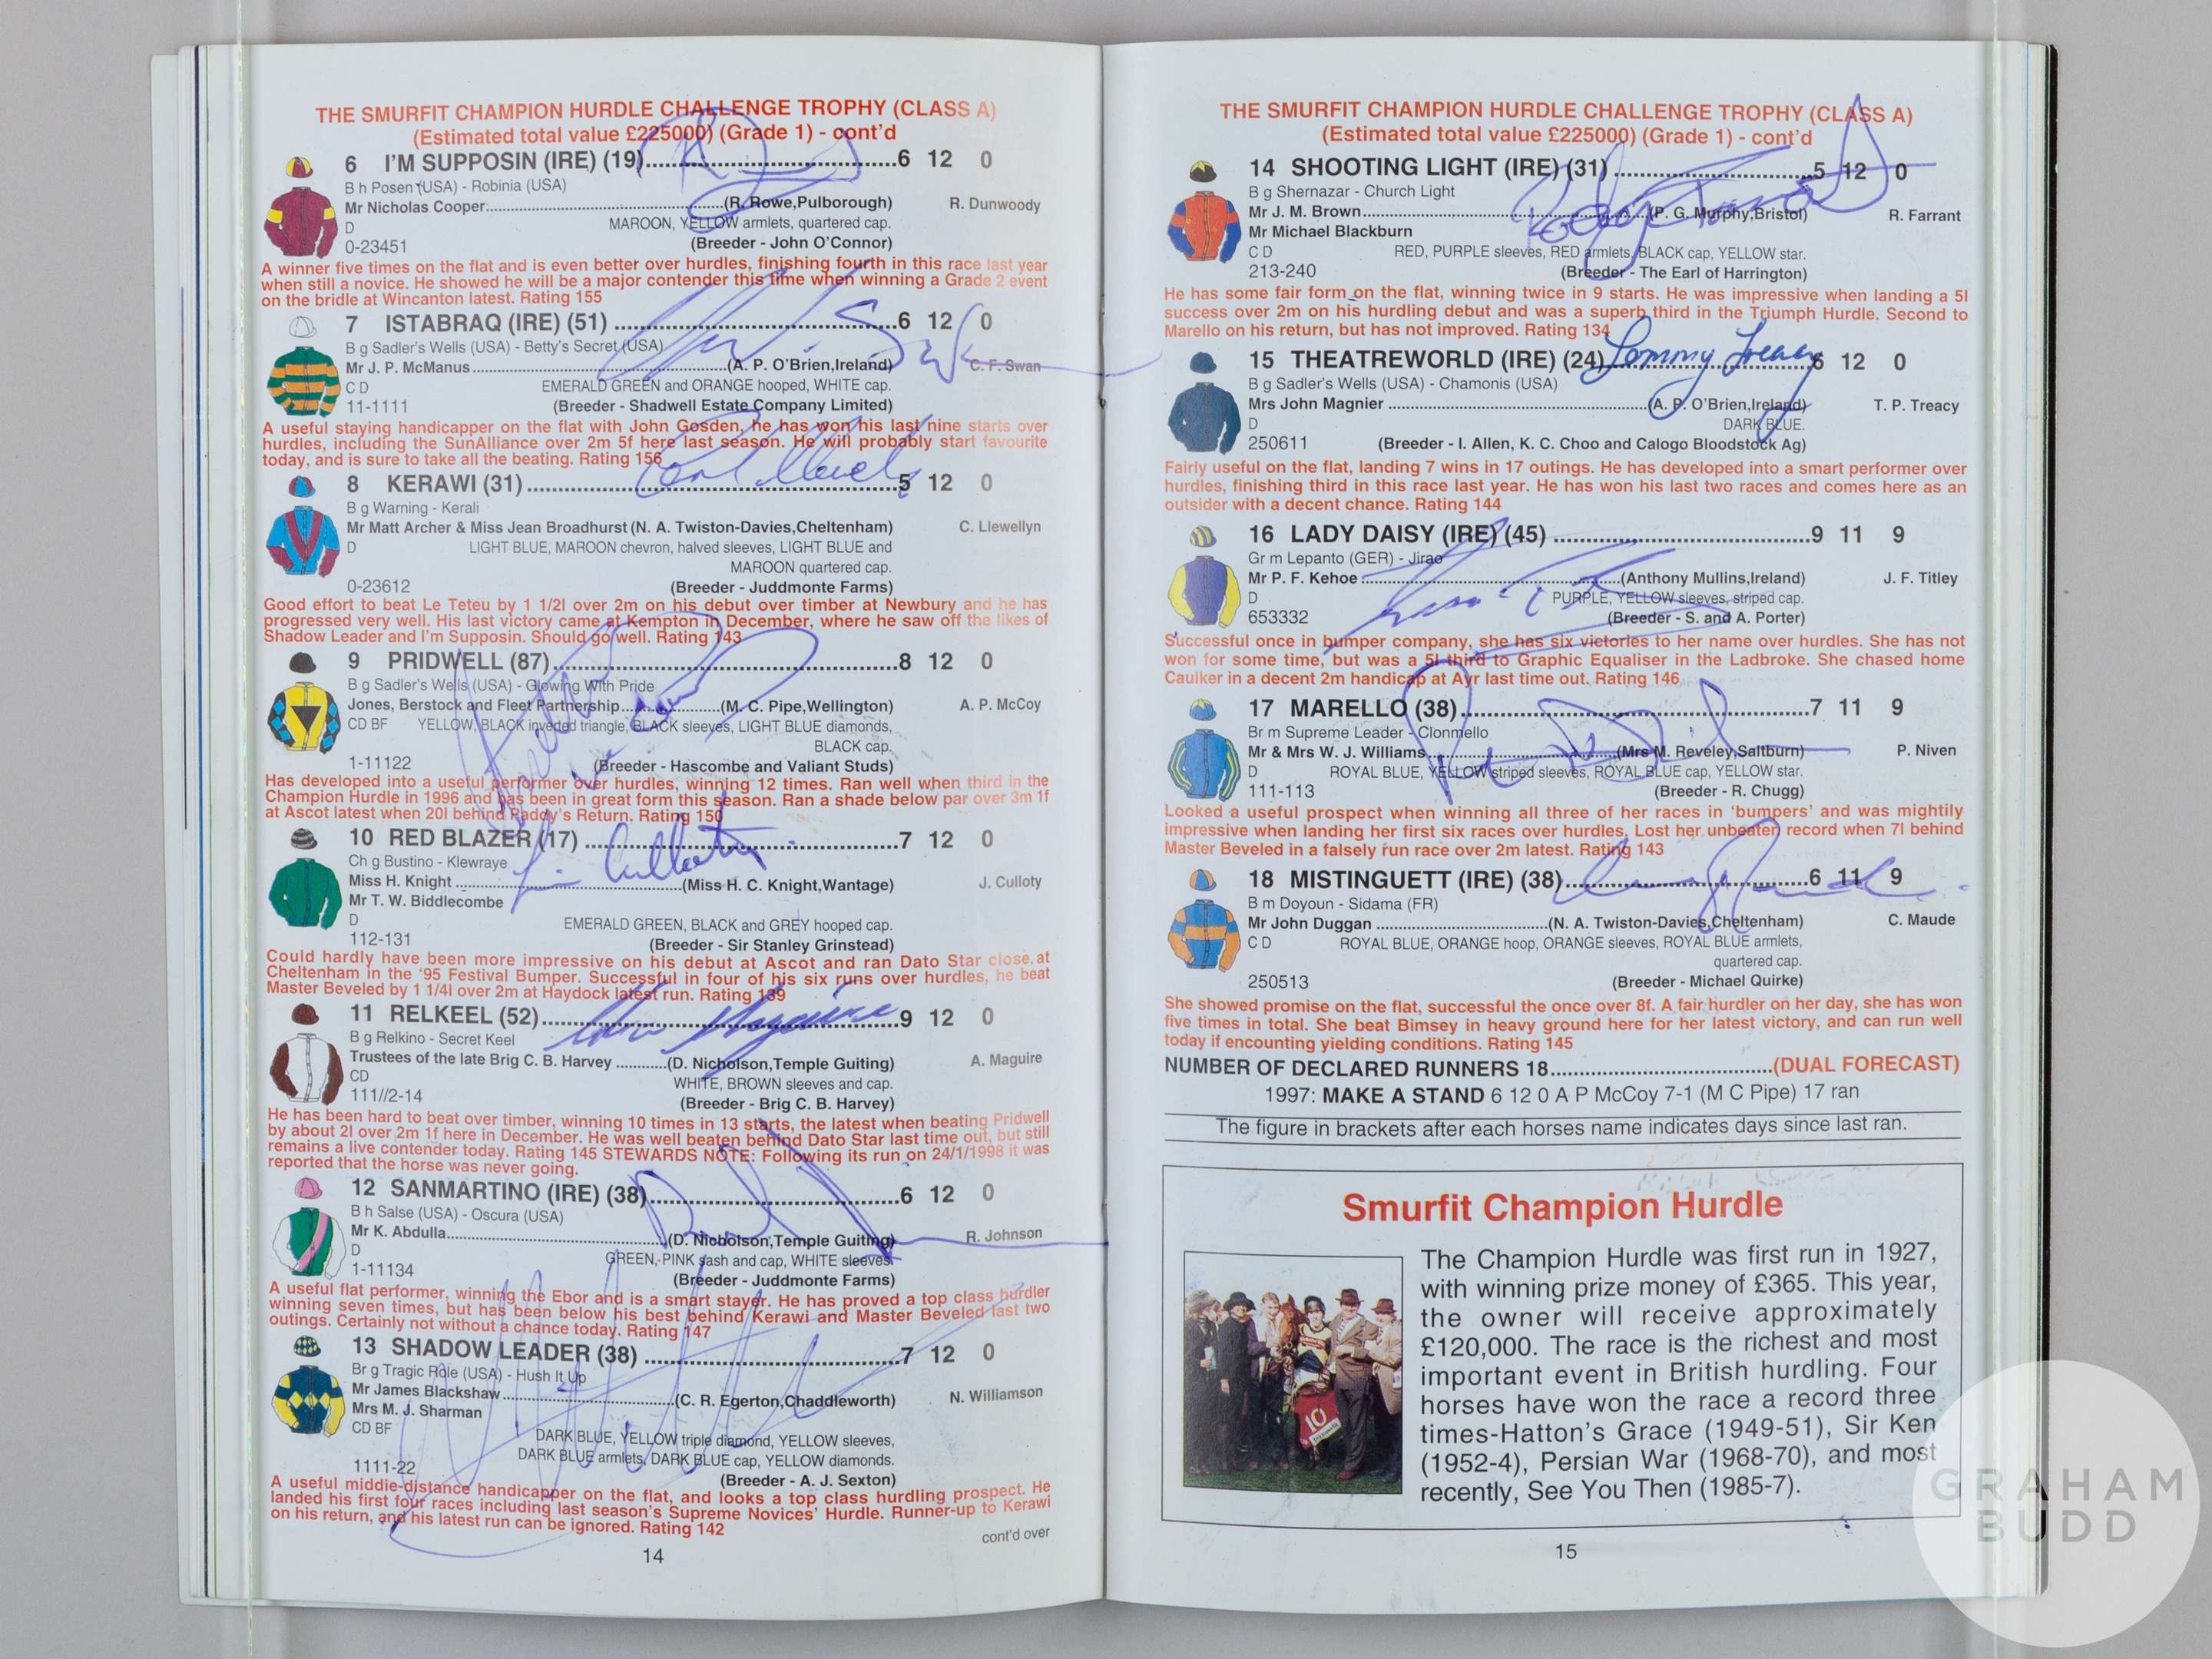 THE SMURFIT CHAMPION HURDLE CHALLENGE TROPHY (CLASS A)
(Estimated total value £225000) (Grade 1) - cont'd
6 I'M SUPPOSIN (IRE) (19)..........6 12 0
B h Posen (USA) - Robinia (USA)
Mr Nicholas Cooper..........(R. Rowe,Pulborough) R. Dunwoody
MAROON, YELLOW armlets, quartered cap.
D
0-23451 (Breeder - John O'Connor)
A winner five times on the flat and is even better over hurdles, finishing fourth in this race last year
when still a novice. He showed he will be a major contender this time when winning a Grade 2 event
on the bridle at Wincanton latest. Rating 155
7 ISTABRAQ (IRE) (51) ..........6 12 0
B g Sadler's Wells (USA) - Betty's Secret (USA)
Mr J. P. McManus..........(A. P. O'Brien,Ireland) C. F. Swan
C D EMERALD GREEN and ORANGE hooped, WHITE cap.
11-1111 (Breeder - Shadwell Estate Company Limited)
A useful staying handicapper on the flat with John Gosden, he has won his last nine starts over
hurdles, including the SunAlliance over 2m 5f here last season. He will probably start favourite
today, and is sure to take all the beating. Rating 156
8 KERAWI (31)..........5 12 0
B g Warning - Kerali
Mr Matt Archer & Miss Jean Broadhurst (N. A. Twiston-Davies,Cheltenham) C. Llewellyn
D LIGHT BLUE, MAROON chevron, halved sleeves, LIGHT BLUE and
MAROON quartered cap.
0-23612 (Breeder - Juddmonte Farms)
Good effort to beat Le Teteu by 1 1/2l over 2m on his debut over timber at Newbury and he has
progressed very well. His last victory came at Kempton in December, where he saw off the likes of
Shadow Leader and I'm Supposin. Should go well. Rating 143
9 PRIDWELL (87)..........8 12 0
B g Sadler's Wells (USA) - Glowing With Pride
Jones, Berstock and Fleet Partnership..........(M. C. Pipe,Wellington) A. P. McCoy
CD BF YELLOW, BLACK inverted triangle, BLACK sleeves, LIGHT BLUE diamonds,
BLACK cap.
1-11122 (Breeder - Hascombe and Valiant Studs)
Has developed into a useful performer over hurdles, winning 12 times. Ran well when third in the
Champion Hurdle in 1996 and has been in great form this season. Ran a shade below par over 3m 1f
at Ascot latest when 20l behind Paddy's Return. Rating 150
10 RED BLAZER (17) ..........7 12 0
Ch g Bustino - Klewraye
Miss H. Knight ..........(Miss H. C. Knight,Wantage) J. Culloty
Mr T. W. Biddlecombe
D EMERALD GREEN, BLACK and GREY hooped cap.
112-131 (Breeder - Sir Stanley Grinstead)
Could hardly have been more impressive on his debut at Ascot and ran Dato Star close at
Cheltenham in the '95 Festival Bumper. Successful in four of his six runs over hurdles, he beat
Master Beveled by 1 1/4l over 2m at Haydock latest run. Rating 139
11 RELKEEL (52)..........9 12 0
B g Relkino - Secret Keel
Trustees of the late Brig C. B. Harvey ..........(D. Nicholson,Temple Guiting) A. Maguire
CD WHITE, BROWN sleeves and cap.
111//2-14 (Breeder - Brig C. B. Harvey)
He has been hard to beat over timber, winning 10 times in 13 starts, the latest when beating Pridwell
by about 2l over 2m 1f here in December. He was well beaten behind Dato Star last time out, but still
remains a live contender today. Rating 145 STEWARDS NOTE: Following its run on 24/1/1998 it was
reported that the horse was never going.
12 SANMARTINO (IRE) (38)..........6 12 0
B h Salse (USA) - Oscura (USA)
Mr K. Abdulla..........(D. Nicholson,Temple Guiting) R. Johnson
D GREEN, PINK sash and cap, WHITE sleeves.
1-11134 (Breeder - Juddmonte Farms)
A useful flat performer, winning the Ebor and is a smart stayer. He has proved a top class hurdler
winning seven times, but has been below his best behind Kerawi and Master Beveled last two
outings. Certainly not without a chance today. Rating 147
13 SHADOW LEADER (38) ..........7 12 0
Br g Tragic Role (USA) - Hush It Up
Mr James Blackshaw..........(C. R. Egerton,Chaddleworth) N. Williamson
Mrs M. J. Sharman
CD BF DARK BLUE, YELLOW triple diamond, YELLOW sleeves,
DARK BLUE armlets, DARK BLUE cap, YELLOW diamonds.
1111-22 (Breeder - A. J. Sexton)
A useful middle-distance handicapper on the flat, and looks a top class hurdling prospect. He
landed his first four races including last season's Supreme Novices' Hurdle. Runner-up to Kerawi
on his return, and his latest run can be ignored. Rating 142
cont'd over
14
THE SMURFIT CHAMPION HURDLE CHALLENGE TROPHY (CLASS A)
(Estimated total value £225000) (Grade 1) - cont'd
14 SHOOTING LIGHT (IRE) (31)..........5 12 0
B g Shernazar - Church Light
Mr J. M. Brown..........(P. G. Murphy,Bristol) R. Farrant
Mr Michael Blackburn
C D RED, PURPLE sleeves, RED armlets, BLACK cap, YELLOW star.
213-240 (Breeder - The Earl of Harrington)
He has some fair form on the flat, winning twice in 9 starts. He was impressive when landing a 5l
success over 2m on his hurdling debut and was a superb third in the Triumph Hurdle. Second to
Marello on his return, but has not improved. Rating 134
Tommy Treacy
15 THEATREWORLD (IRE) (24)..........6 12 0
B g Sadler's Wells (USA) - Chamonis (USA)
Mrs John Magnier ..........(A. P. O'Brien,Ireland) T. P. Treacy
D DARK BLUE.
250611 (Breeder - I. Allen, K. C. Choo and Calogo Bloodstock Ag)
Fairly useful on the flat, landing 7 wins in 17 outings. He has developed into a smart performer over
hurdles, finishing third in this race last year. He has won his last two races and comes here as an
outsider with a decent chance. Rating 144
16 LADY DAISY (IRE) (45) ..........9 11 9
Gr m Lepanto (GER) - Jirao
Mr P. F. Kehoe ..........(Anthony Mullins,Ireland) J. F. Titley
D PURPLE, YELLOW sleeves, striped cap.
653332 (Breeder - S. and A. Porter)
Successful once in bumper company, she has six victories to her name over hurdles. She has not
won for some time, but was a 5l third to Graphic Equaliser in the Ladbroke. She chased home
Caulker in a decent 2m handicap at Ayr last time out. Rating 146
17 MARELLO (38)..........7 11 9
Br m Supreme Leader - Clonmello
Mr & Mrs W. J. Williams..........(Mrs M. Reveley,Saltburn) P. Niven
D ROYAL BLUE, YELLOW striped sleeves, ROYAL BLUE cap, YELLOW star.
111-113 (Breeder - R. Chugg)
Looked a useful prospect when winning all three of her races in 'bumpers' and was mightily
impressive when landing her first six races over hurdles. Lost her unbeaten record when 7l behind
Master Beveled in a falsely run race over 2m latest. Rating 143
18 MISTINGUETT (IRE) (38)..........6 11 9
B m Doyoun - Sidama (FR)
Mr John Duggan ..........(N. A. Twiston-Davies,Cheltenham) C. Maude
C D ROYAL BLUE, ORANGE hoop, ORANGE sleeves, ROYAL BLUE armlets,
quartered cap.
250513 (Breeder - Michael Quirke)
She showed promise on the flat, successful the once over 8f. A fair hurdler on her day, she has won
five times in total. She beat Bimsey in heavy ground here for her latest victory, and can run well
today if encounting yielding conditions. Rating 145
NUMBER OF DECLARED RUNNERS 18..........(DUAL FORECAST)
1997: MAKE A STAND 6 12 0 A P McCoy 7-1 (M C Pipe) 17 ran
The figure in brackets after each horses name indicates days since last ran.
Smurfit Champion Hurdle
The Champion Hurdle was first run in 1927,
with winning prize money of £365. This year,
the owner will receive approximately
£120,000. The race is the richest and most
important event in British hurdling. Four
horses have won the race a record three
times-Hatton's Grace (1949-51), Sir Ken
(1952-4), Persian War (1968-70), and most
recently, See You Then (1985-7).
10
15
GRAHAM
BUDD